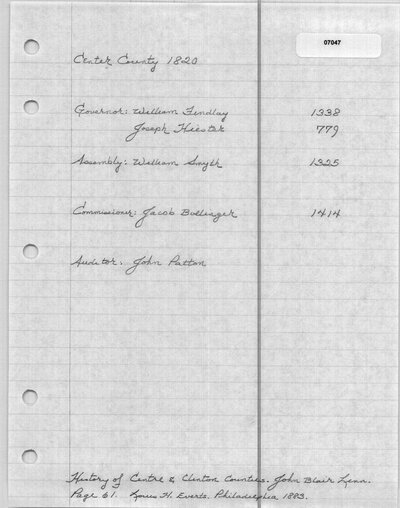 07047
Center County 1820
Governor: William Findlay 1338
Joseph Hiester 779
Assembly: William Smyth 1325
Commissioner: Jacob Bollinger 1414
Auditor. John Patton
History of Centre & Clinton Counties. John Blair Linn.
Page 61. Louis H. Everts. Philadelphia 1883.